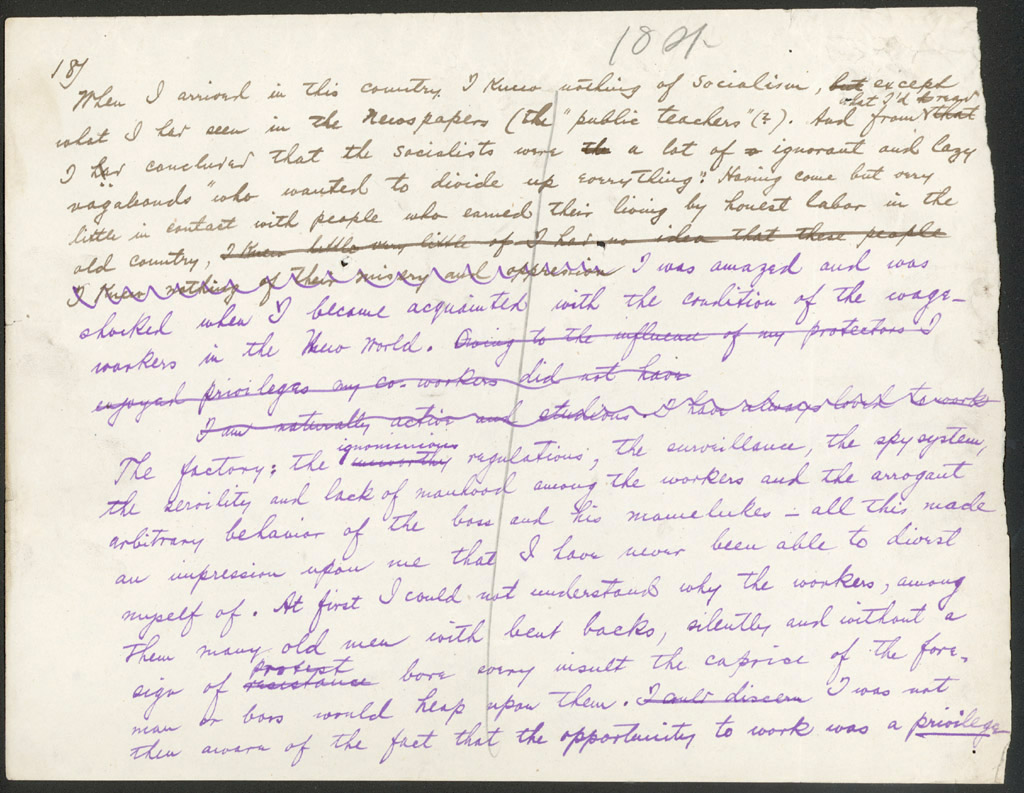 18 a
18/
When I arrived in this country I knew nothing of Socialism, but except
what I had seen in the Newspapers (the "public teachers"(?). And from what I'd read that
I had concluded that the socialists were the a lot of ignorant and lazy
"vagabonds" who wanted to divide up everything". Having come but very
little in contact with people who earned their living by honest labor in the
old country, I knew little very little of I had no idea that these people
I knew nothing of their misery and oppression I was amazed and was
shocked when I became acquainted with the condition of the wage-
workers in the New World. Owing to the influence of my protectors I
enjoyed privileges my co-workers did not have
I am naturally active and studious I have always loved to work
The factory: the ignominious unworthy regulations, the surveillance, the spy system,
the servility and lack of manhood among the workers and the arrogant
arbitrary behavior of the boss and his mamelukes – all this made
an impression upon me that I have never been able to divest
myself of. At first I could not understand why the workers, among
them many old men with bent backs, silently and without a
sign of protest resistance bore every insult the caprice of the fore-
man or boss would heap upon them. I could discern I was not
then aware of the fact that the opportunity to work was a privilege